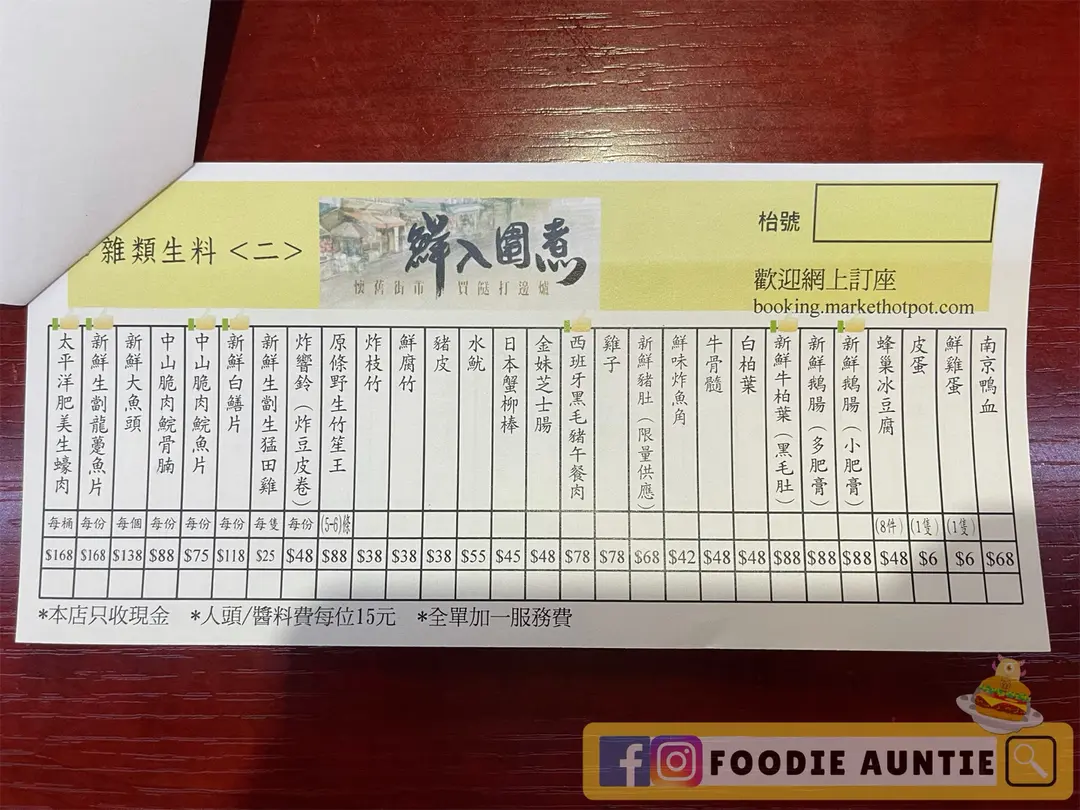 雜類生料<二>
鮮入圍煮
懷舊街市 買餸打邊爐
枱號
歡迎網上訂座
booking.markethotpot.com
太平洋肥美生蠔肉
新鮮生劏龍躉魚片
新鮮大魚頭
中山脆肉鯇骨腩
中山脆肉鯇魚片
新鮮白鱔片
新鮮生劏生猛田雞
炸響鈴(炸豆皮卷)
原條野生竹笙王
炸枝竹
鮮腐竹
豬皮
水魷
日本蟹柳棒
金妹芝士腸
西班牙黑毛豬午餐肉
雞子
新鮮豬肚(限量供應)
鮮味炸魚角
牛骨髓
白柏葉
新鮮牛柏葉(黑毛肚)
新鮮鵝腸(多肥膏)
新鮮鵝腸(小肥膏)
蜂巢冰豆腐
皮蛋
鮮雞蛋
南京鴨血
每桶 每份 每個 每份 每份 每份 每隻 每份 (5-6)條 (8件) (1隻) (1隻)
$168 $168 $138 $88 $75 $118 $25 $48 $88 $38 $38 $38 $55 $45 $48 $78 $78 $68 $42 $48 $48 $88 $88 $88 $48 $6 $6 $68
*本店只收現金 *人頭/醬料費每位15元 *全單加一服務費
FOODIE AUNTIE